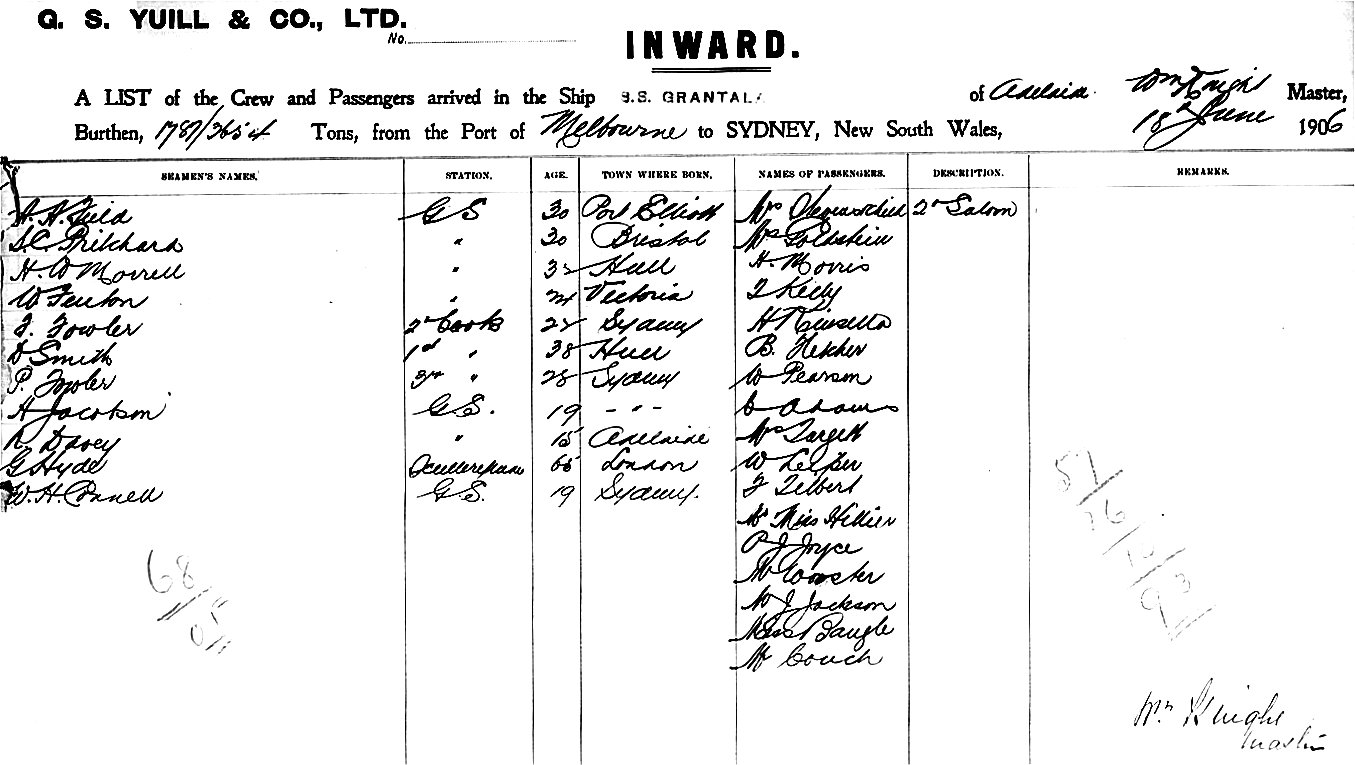 G. S. YUILL & CO., LTD.
No.
INWARD.
A LIST of the Crew and Passengers arrived in the Ship S.S. GRANTALA of Adelaide Wm Knight Master,
Burthen, 1787/3654 Tons, from the Port of Melbourne to SYDNEY, New South Wales, 18 June 1906
SEAMEN'S NAMES. STATION. AGE. TOWN WHERE BORN. NAMES OF PASSENGERS. DESCRIPTION. REMARKS.
A. H. Field GS 30 Port Elliott Mrs 2nd Saloon
S.C. Pritchard " 30 Bristol Goldstein
H. W Morrell " 32 Hull H. Morris
W Fenton " 24 Victoria T Kelly
F. Fowler 2nd Cook 22 Sydney H Kinsella
D Smith 1st " 38 Hull B.
P. Fowler 3rd " 28 Sydney W Pearson
A Jacobson GS. 19 - " - Adams
R. Davey " 15 Adelaide Mrs Targett
G Hyde 65 London W Leiper
W. H. Connell G.S. 19 Sydney. F Tilbert
Miss Hillier
P J Joyce
Mr Comster
W J Jackson
Miss Baugle
Mr Couch
68/11/5/0/11
51/16/2/3/9/11
Wm Knight
Master